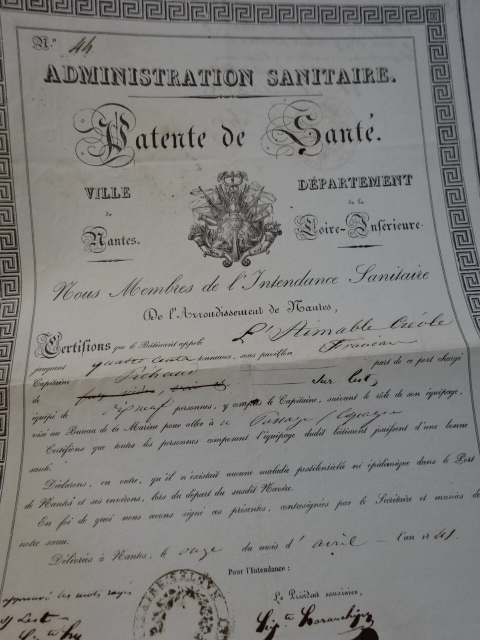 N.° 44
ADMINISTRATION SANITAIRE.
Patente de Santé.
VILLE
de
Nantes.
DÉPARTEMENT
de la
Loire-Inférieure
Nous Membres de l'Intendance Sanitaire
De l'Arrondissement de Nantes,
Certifions que le Bâtiment appelé L'Aimable Créole
jaugeant quatre cents tonneaux, sous pavillon Français
Capitaine part de ce port chargé
de Sur Lest,
équipé de neuf personnes, y compris le Capitaine, suivant le rôle de son équipage,
visé au Bureau de la Marine pour aller à
Certifions que toutes les personnes composant l'équipage dudit bâtiment jouissent d'une bonne
santé.
Déclarons, en outre, qu'il n'existait aucune maladie pestilentielle ni épidémique dans le Port
de Nantes et ses environs, lors du départ du susdit Navire.
En foi de quoi nous avons signé ces présentes, contresignées par le Secrétaire et munies de
notre sceau.
Délivrées à Nantes, le onze du mois d'avril l'an 18 41
Pour l'Intendance:
Le Président semainier,
approuvé les mots rayés
Lest